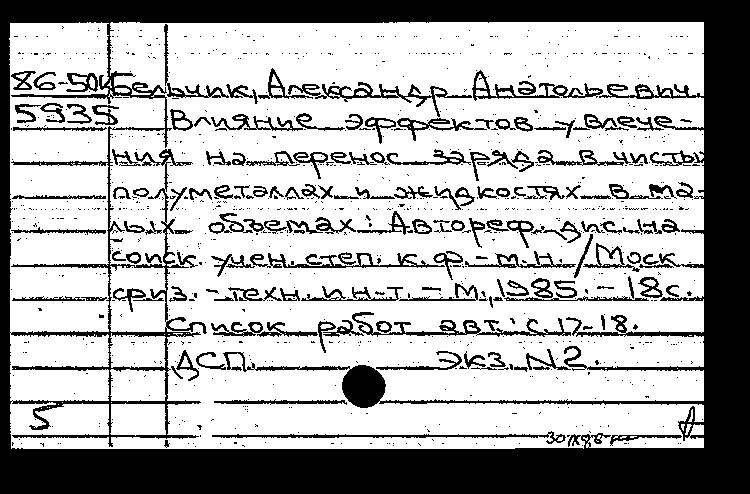 86-50к Бельчик, Александр Анатольевич.
5935 Влияние эффектов увлече-
ния на перенос заряда в чистых
полуметаллах и жидкостях в ма-
лых объемах: Автореф. дис. на
соиск. учен. степ. к.ф.-м.н. / Моск
физ.-техн. ин-т. - М., 1985. - 18с.
Список работ авт.: с. 17-18.
ДСП. Экз. N2.
5